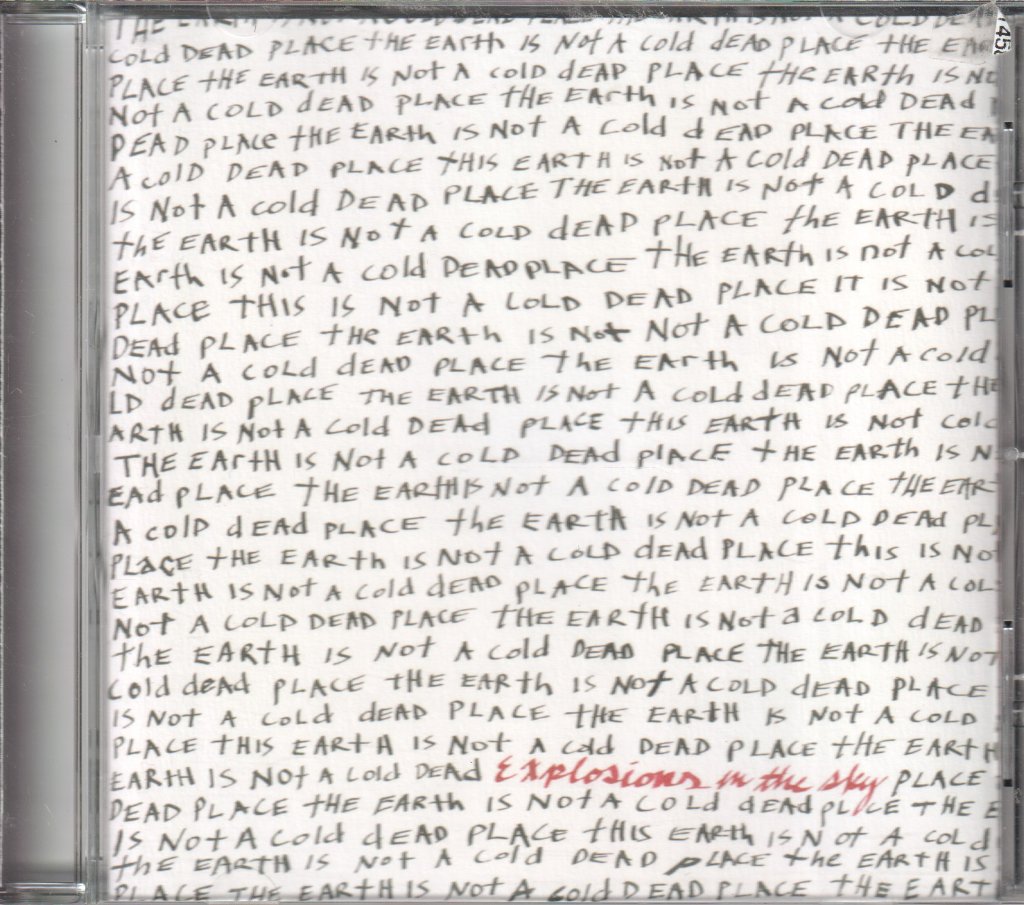 THE EARTH IS NOT A COLD DEAD PLACE THE EARTH IS NOT A COLD DEAD
COLD DEAD PLACE tHE EARth IS Not A cold dEAD PLACE tHE EAR
PLACE tHE EARTH IS Not A cold dEAD PLACE tHE EARth IS NO
Not A COLD dEAD PLACE tHE EArth IS Not A cold DEAd
DEAD pLAce tHE EARth IS Not A Cold d EAD PLACE THE EA
A colD DEAD PLACE tHIS EARTH IS Not A Cold DEAD PLACE
IS Not A cold DEAD PLACE THE EARTH IS Not A COLD d
tHE EARtH IS Not A COLD dEAD PLACE the EARtH IS
EArth IS Not A cold DEAD PLACE tHE EARth IS not A COL
PLACE THIS IS Not A COLD DEAD PLACE IT IS NOt
DEAd PLACE tHE EARth IS Not Not A COLD DEAD PL
Not A COLd dEAD PLACE tHE EArth IS Not A Cold
LD dEAD pLACE THE EARTH IS Not A Cold dEAD PLACE tHE
ARTH IS Not A Cold DEAd PLACE tHIS EARTH IS Not cold
THE EArtH IS Not A COLD DEAd plACE tHE EARth IS N
EAd PLACE tHE EARtH IS Not A COLD DEAD PLACE tHE EAR
A colD dEAd PLACE tHE EARTH IS Not A COLD DEAd PL
PLACE tHE EARth IS NOt A COLD dEAd PLACE thIS IS No
EARTH IS Not A cold dEAD PLACE the EARTH IS Not A COL
Not A COLD DEAD PLACE THE EARTH IS Not a COLD dEAD
tHE EARtH IS Not A cold DEAD PLACE THE EARtH IS NOT
Cold deAd PLACE tHE EARth IS Not A COLD dEAD PLACE
IS Not A Cold dEAD PLACE tHE EARtH IS Not A COLD
PLACE tHIS EARtH IS Not A Cold DEAD PLACE tHE EARtH
EARtH IS NOt A Cold DEAD Explosions in the sky PLACE
DEAD PLACE tHE EARth IS NOt A COLd dEAd pLACE tHE E
IS Not A Cold dEAD PLACE tHIS EARth IS Not A COLd
tHE EARTH IS Not A Cold DEAD pLACE the EARtH IS
PLACE THE EARtH IS NOt A Cold DEAD PLACE tHE EART
45